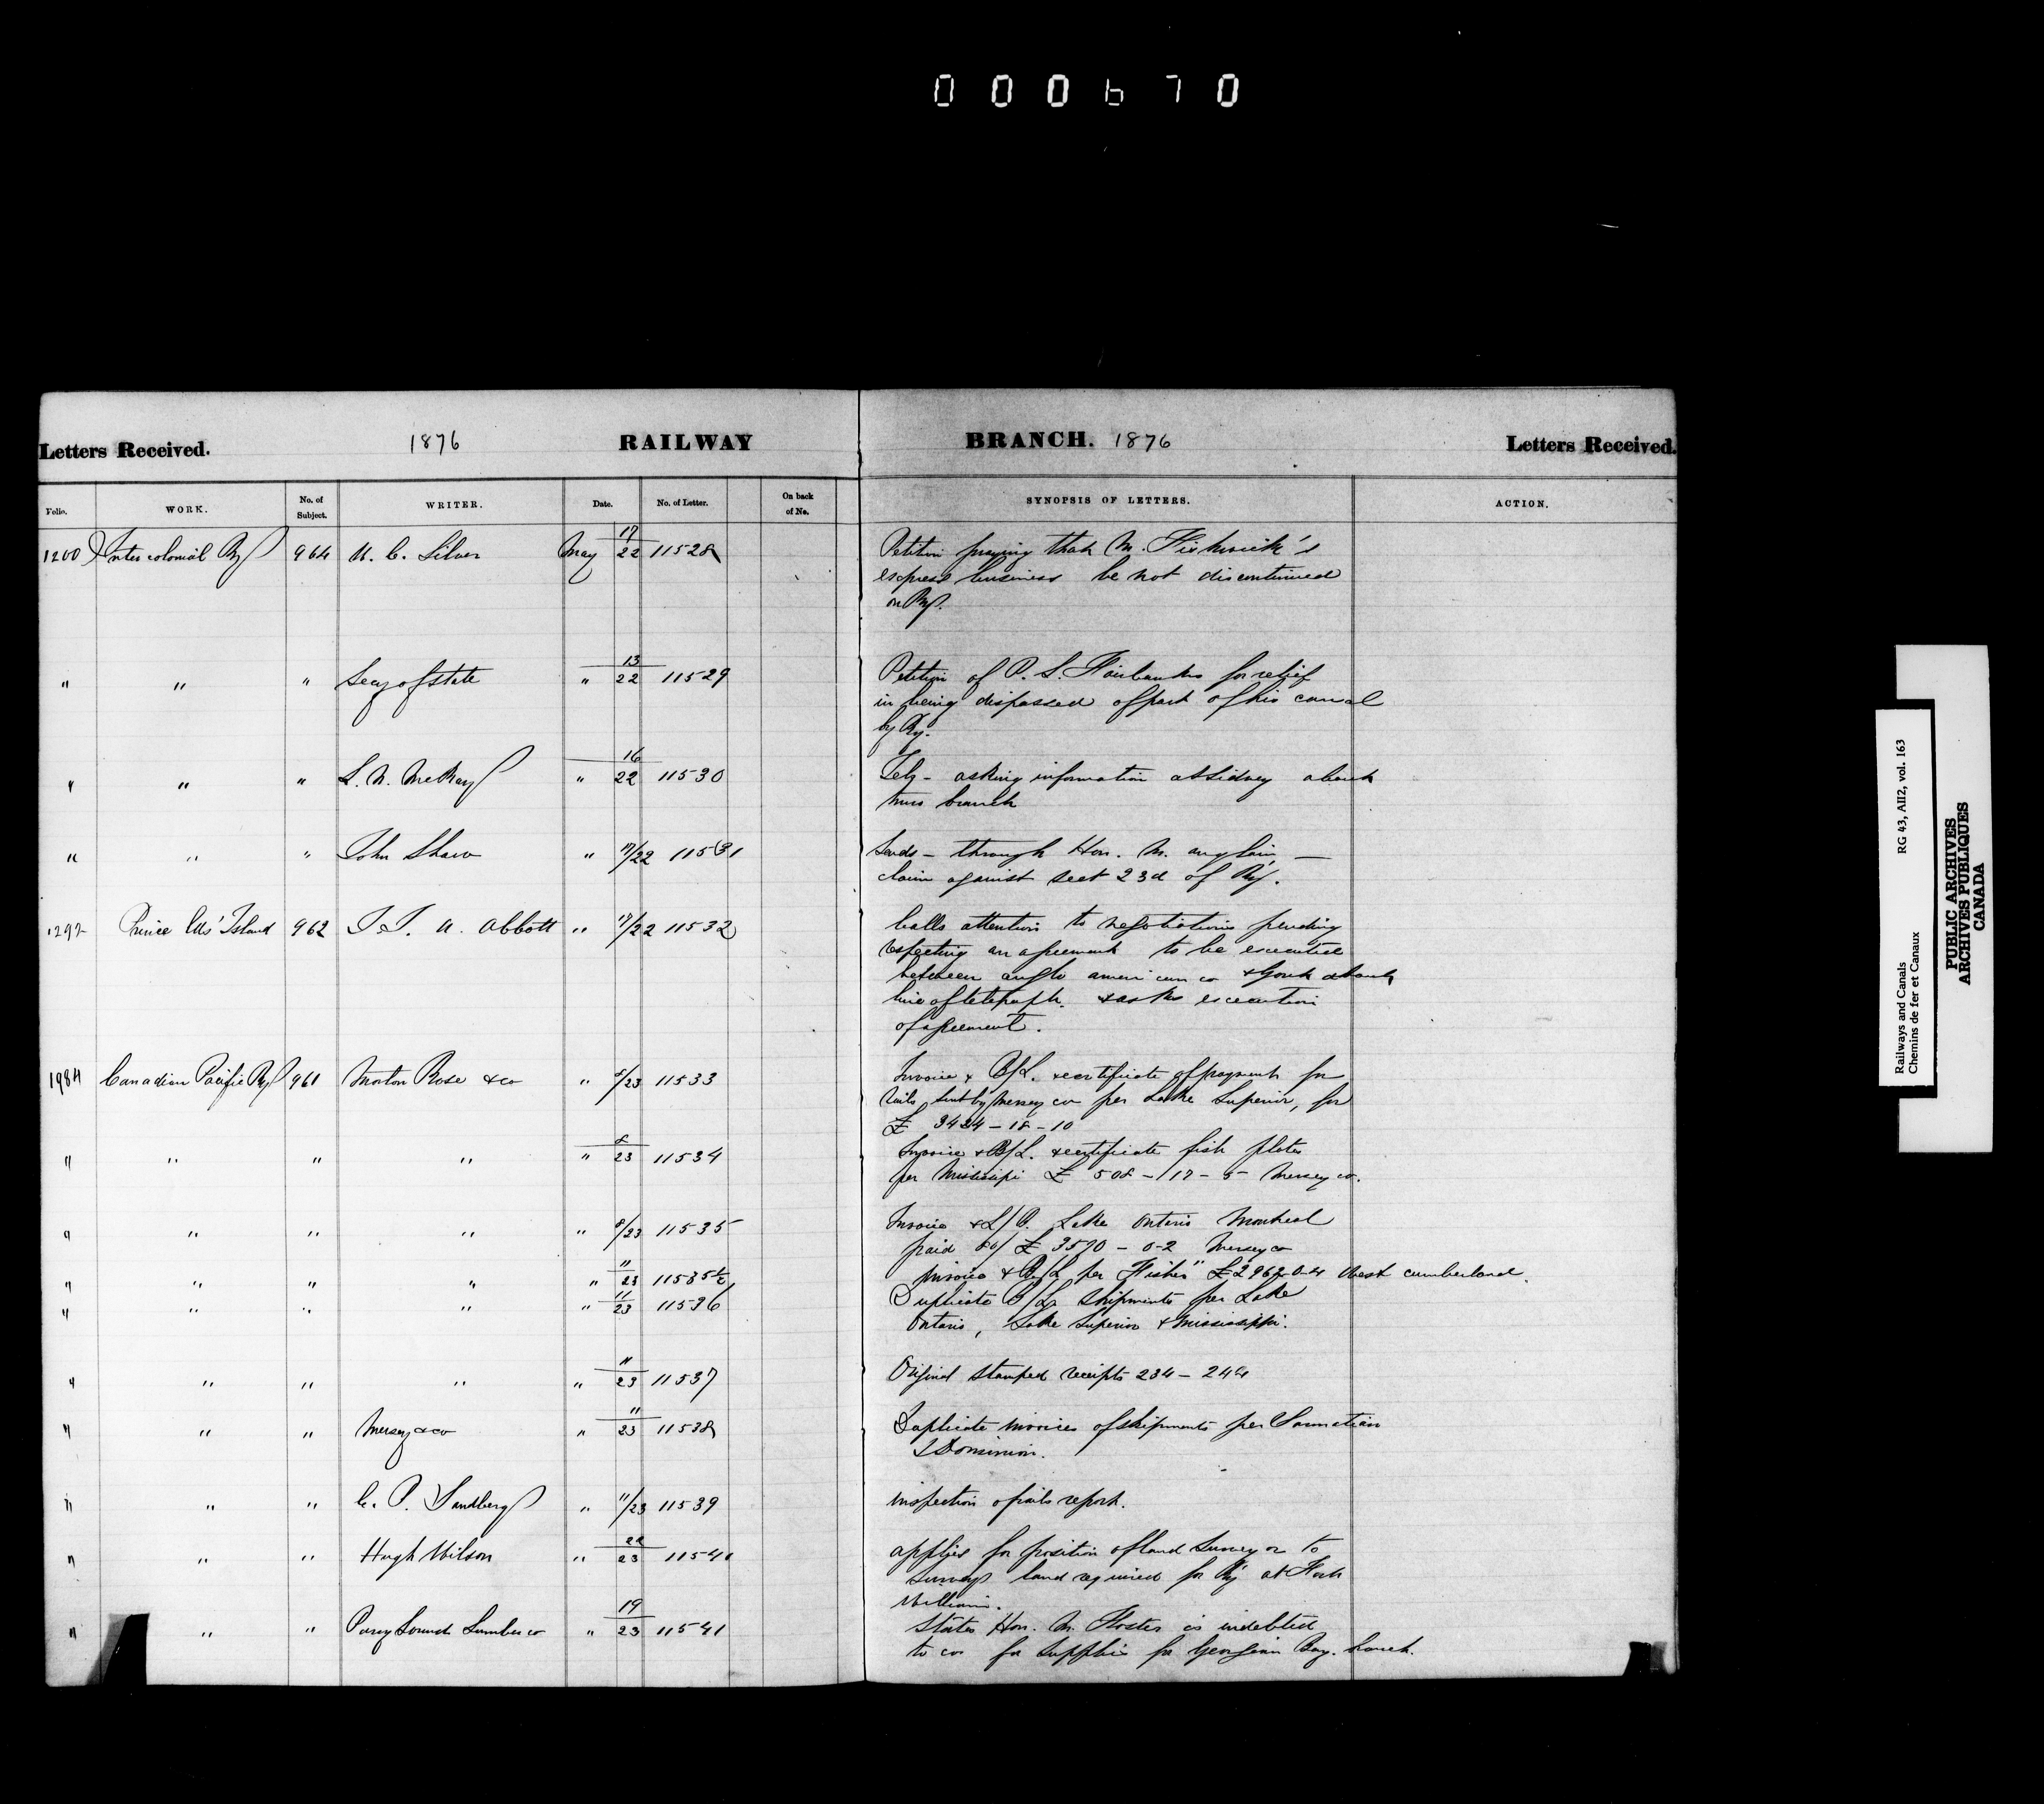 000670
Letters Received. 1876 RAILWAY BRANCH. 1876 Letters Received.
Folio. WORK. No. of Subject. WRITER. Date. No. of Letter. On back of No. SYNOPSIS OF LETTERS. ACTION.
1200 Intercolonial Ry 964 W. C. Silver May 17/22 11528 Petition praying that M. Fishwick's
express business be not discontinued
on Ry.
" " " Secy of State " 13/22 11529 Petition of P. S. Fairbanks for relief
in being dispossed of part of his canal
by Ry.
" " " L. N. McKay " 16/22 11530 Telg - asking information at Sidney about
truro branch
" " " John Shaw " 17/22 11531 Sends - through Hon. M. anglain -
claim against sect 23d of Ry.
1292 Prince Eds' Island 962 J. J. A. Abbott " 17/22 11532 Calls attention to negotiations pending
respecting an agreement to be executed
between anglo american co & Govt about
line of telegraph. & asks execution
of agreement.
1984 Canadian Pacific Ry 961 Morton Rose & co " 8/23 11533 Invoice & B/L. & certificate of payment for
rails sent by Mersey co per Lake Superior, for
£ 3424-18-10
" " " " " 8/23 11534 Invoice & B/L. & certificate fish plates
per Mississipi £ 508-17-5 Mersey co.
" " " " " 8/23 11535 Invoice & L/B. Lake Ontario Montreal
paid £ 3570-0-2 Mersey co
" " " " " 11/23 11535½ Invoice & B/L per "Fisher" £2962-0-4 West Cumberland.
" " " " " 11/23 11536 Duplicate B/L shipments per Lake
Ontario, Lake Superior & Mississippi.
" " " " " 11/23 11537 Original stamped receipts 234-244
" " " Mersey & co " 11/23 11538 Duplicate invoices of shipments per Sarmatian
& Dominion.
" " " C. P. Sandberg " 11/23 11539 inspection of rails report.
" " " Hugh Wilson " 22/23 11540 applies for position of land Surveyor to
survey land required for Ry at Fort
William.
" " " Parry Sound Lumber co " 19/23 11541 States Hon. M. Foster is indebted
to co for supplies for Georgian Bay. branch.
Railways and Canals RG 43, AII2, vol. 163
Chemins de fer et Canaux
PUBLIC ARCHIVES
ARCHIVES PUBLIQUES
CANADA